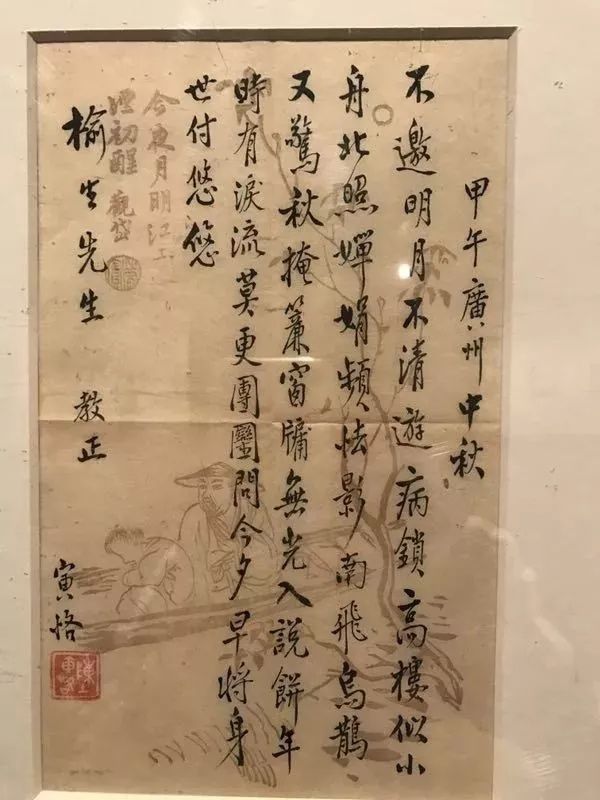 甲午廣州中秋
不邀明月不清遊病鎖高樓似小
舟北照嬋娟頻怯影南飛烏鵲
又驚秋掩簾窗牖無光入說餅年
時有淚流莫更團圞問今夕早將身
世付悠悠
今夜月明江上
酒初醒 觀岱
榆生先生 教正
寅恪